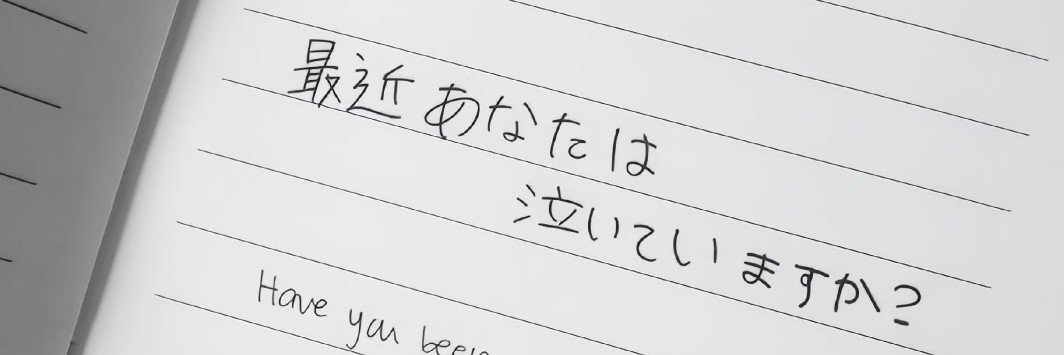 最近あなたは
泣いていますか?
Have you been